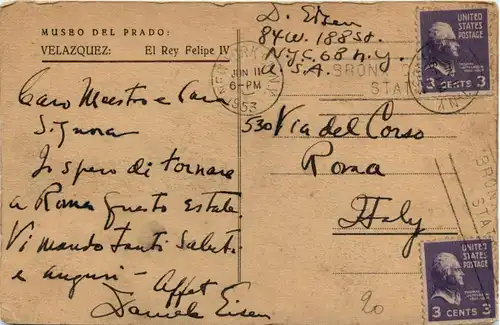 MUSEO DEL PRADO:
VELAZQUEZ: El Rey Felipe IV
Caro Maestro e Cara
Signora
Io spero di tornare
a Roma questo estate.
Vi mando tanti saluti
e auguri – Affet
Daniele Eisen
D. Eisen
84 W. 188 St.
N.Y.C. 68 N.Y.
U.S.A.
530 Via del Corso
Roma
Italy
20
NEW YORK, N.Y.
JUN 11
6-PM
1953
BRON
STAT
N.Y.
BRON
STAT
UNITED
STATES
POSTAGE
3 CENTS 3
UNITED
STATES
POSTAGE
3 CENTS 3